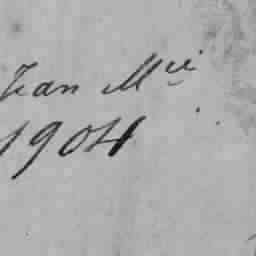 Jean M^cé
1904